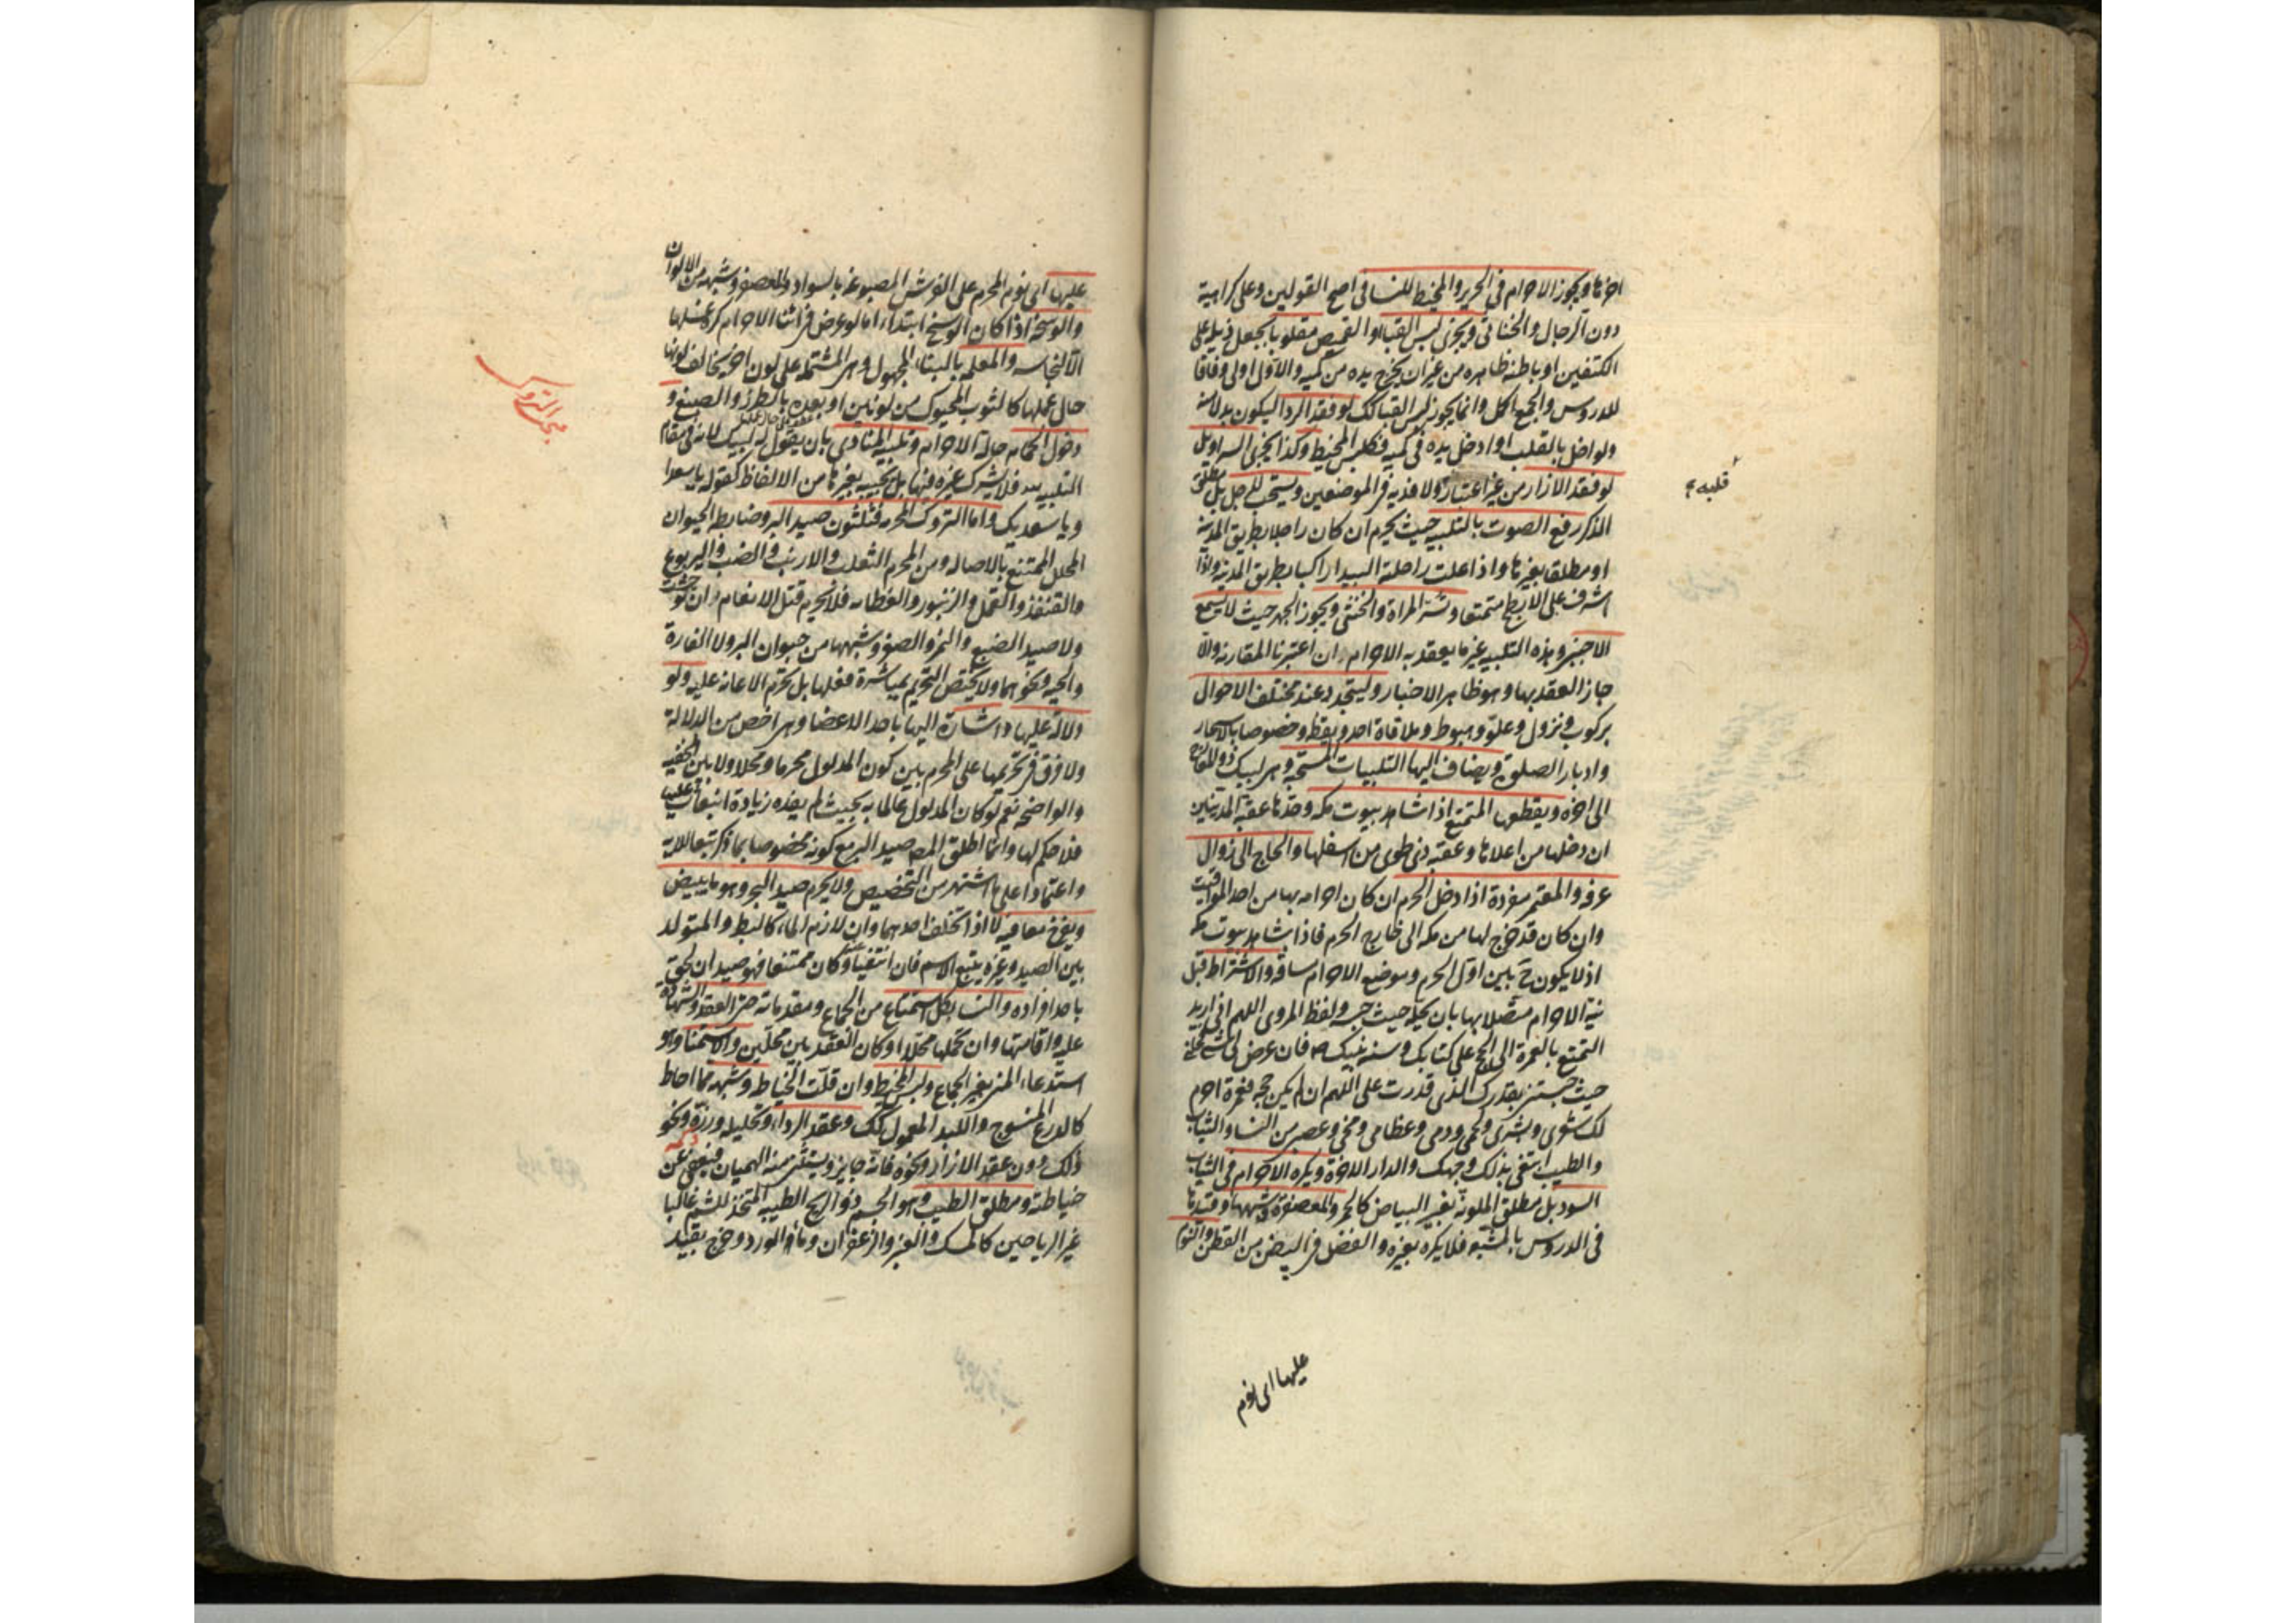 اخرها ويجوز الاحرام في الحرير والمخيط للنساء في اصح القولين وعلى كراهية
دون الرجال والخناثى ويجزي لبس القباء او القميص مقلوبا يجعل ذيله على
الكتفين او باطنه ظاهره من غير ان يخرج يده من كميه والاول اولى وفاقا
للدروس والجمع اكمل وانما يجوز لبس القبا كك لو فقد الردا ليكون بدلا منه
ولو اخل بالقلب او ادخل يده في كميه فكلبس المخيط وكذا يجزي السراويل
لو فقد الازار من غير اعتبار ولا فديه في الموضعين ويستحب للرجل بل مطلق
قلبه
الذكر رفع الصوت بالتلبيه حيث يحرم ان كان راجلا بطريق المدينه
او مطلقا بغيرها واذا علت راحلته البيدا راكبا بطريق المدينه واذا
اشرف على الابطح متمتعا وتسر المراة والخنثى ويجوز الجهر حيث لا يسمع
الاجنبي وهذه التلبيه غير ما يعقد به الاحرام ان اعتبرنا المقارنه والا
جاز العقد بها وهو ظاهر الاخبار وليتجدد عند مختلف الاحوال
بركوب ونزول وعلو وهبوط وملاقاة احد ويقظه وخصوصا بالاسحار
وادبار الصلوة ويضاف اليها التلبيات المستحبه وهي لبيك ذو المعارج
الى اخره ويقطعها المتمتع اذا شاهد بيوت مكه وحدها عقبه المدنيين
ان دخلها من اعلاها وعقبه ذي طوى من اسفلها والحاج الى زوال
عرفه والمعتمر مفردة اذا دخل الحرم ان كان احرامه بها من احد المواقيت
وان كان قد خرج لها من مكه الى خارج الحرم فاذا شاهد بيوت مكه
اذ لا يكون ح بين اول الحرم وموضع الاحرام مسافه والاشتراط قبل
نية الاحرام متصلا بها بان يحله حيث حبسه ولفظ المروي اللهم اني اريد
التمتع بالعمرة الى الحج على كتابك وسنه نبيك ص فان عرض لي شي فحلني
حيث حبستني بقدرك الذي قدرت علي اللهم ان لم يكن حجه فعمرة احرم
لك شعري وبشري ولحمي ودمي وعظامي ومخي وعصبي من النساء والثياب
والطيب ابتغي بذلك وجهك والدار الاخرة ويكره الاحرام في الثياب
السود بل مطلق الملونه بغير البياض كالحمر والمعصفرة وشبهها وقيدها
في الدروس بالمشبع فلا يكره بغيره والفضل في البيض من القطن والنوم
عليها اى نوم
عليها اى نوم المحرم على الفرش المصبوغه بالسواد والمعصفر وشبهه من الالوان
والوسخه اذا كان الوسخ ابتداء اما لو عرض في اثنا الاحرام كره غسلها
الا لنجاسه والمعلمه بالبناء للمجهول وهي المشتمله على لون اخر يخالف لونها
حال عملها كالثوب المحبوك من لونين او بعده بالطرز والصبغ و
دخول الحمام حالة الاحرام وتلبيه المنادي بان يقول له لبيك لانه في مقام
التلبيه لله فلا يشرك غيره فيها بل يجيبه بغيرها من الالفاظ كقوله يا سعد
ويا سعديك واما التروك المحرمه فثلثون صيد البر وضابطه الحيوان
المحلل الممتنع بالاصاله ومن المحرم الثعلب والارنب والضب واليربوع
والقنفذ والقمل والزنبور والعظايه فلا يحرم قتل الانعام وان توحشت
ولا صيد الضبع والنمر والصقر وشبهها من حيوان البر ولا الفارة
والحيه ونحوهما ولا يختص التحريم بمباشرة فعلها بل يحرم الاعانه عليه ولو
دلالة عليها واشارة اليها باحد الاعضا وهي اخص من الدلالة
ولا فرق في تحريمها على المحرم بين كون المدلول محرما ومحلا ولا بين الخفيه
والواضحه نعم لو كان المدلول عالما به بحيث لم يفده زيادة انبعاث عليه
فلا حكم لها وانما اطلق المص صيد البر مع كونه مخصوصا بما ذكر تبعا للايه
واعتمادا على ما اشتهر من التخصيص ولا يحرم صيد البحر وهو ما يبيض
ويفرخ معا فيه لا اذا تخلف احدهما وان لازم الماء كالبط والمتولد
بين الصيد وغيره يتبع الاسم فان انتفيا وكان ممتنعا فهو صيد ان لحق
باحد افراده والنسا بكل استمتاع من الجماع ومقدماته حتى العقد والشهادة
عليه واقامتها وان تحملها محلا او كان العقد بين محلين والاستمنا وهو
استدعاء المني بغير الجماع ولبس المخيط وان قلت الخياطه وشبهه مما احاط
كالدرع المنسوج واللبد المعمول كك وعقد الرداء وتخليله وزره ونحو
ذلك دون عقد الازار ونحوه فانه جايز ويستثنى منه الهميان فيعفى عن
خياطته ومطلق الطيب وهو الجسم ذو الريح الطيبه المتخذ للشم غالبا
غير الرياحين كالمسك والعنبر والزعفران وماء الورد وخرج بقيد